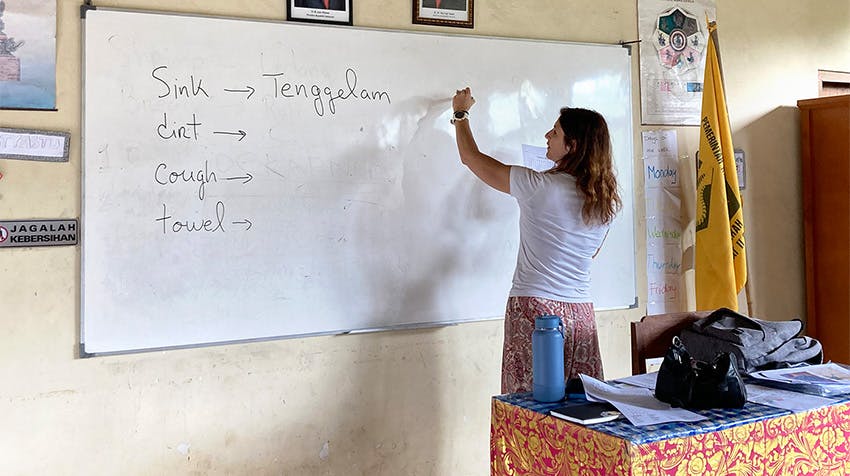 Sink → Tenggelam
dirt →
Cough →
towel →
JAGALAH
KEBERSIHAN
Monday
Wednesday
Thursday
Friday